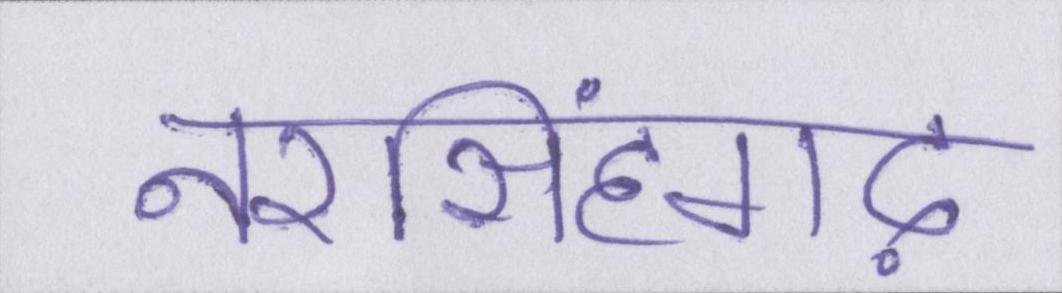 नरसिंहगढ़